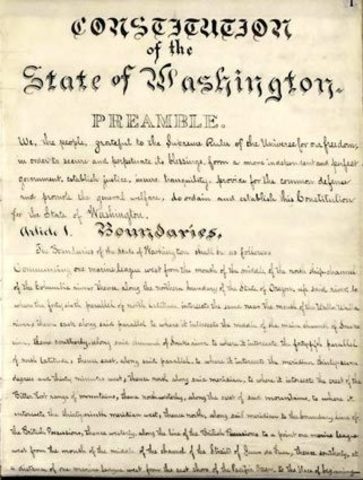 1
CONSTITUTION
of the
State of Washington.
PREAMBLE.
We, the people, grateful to the Supreme Ruler of the Universe for our freedom,
in order to secure and perpetuate its blessings, form a more independent and perfect
government, establish justice, insure tranquility, provide for the common defense
and promote the general welfare, do ordain and establish this Constitution
for the State of Washington.
Article 1. Boundaries.
The Boundaries of the State of Washington shall be as follows:
Commencing one marine league west from the mouth of the middle of the north ship channel
of the Columbia river thence along the northern boundary of the State of Oregon up said river to
where the forty sixth parallel of north latitude intersects the same near the mouth of the Walla Walla
river; thence east along said parallel to where it intersects the middle of the main channel of Snake
river, thence southerly, along said channel of Snake river to where it intersects the forty fifth parallel
of north latitude, thence east, along said parallel to where it intersects the meridian thirty-seven
degrees and thirty minutes west, thence north along said meridian, to where it intersects the crest of the
Bitter Root range of mountains, thence northwesterly, along the crest of said mountains, to where it
intersects the thirty ninth meridian west, thence north, along said meridian to the boundary line of
the British Possessions, thence westerly, along the line of the British Possessions to a point one marine league
west from the mouth of the middle of the channel of the Strait of Juan de Fuca, thence southerly, at
a distance of one marine league west from the shore of the Pacific Ocean to the place of beginning